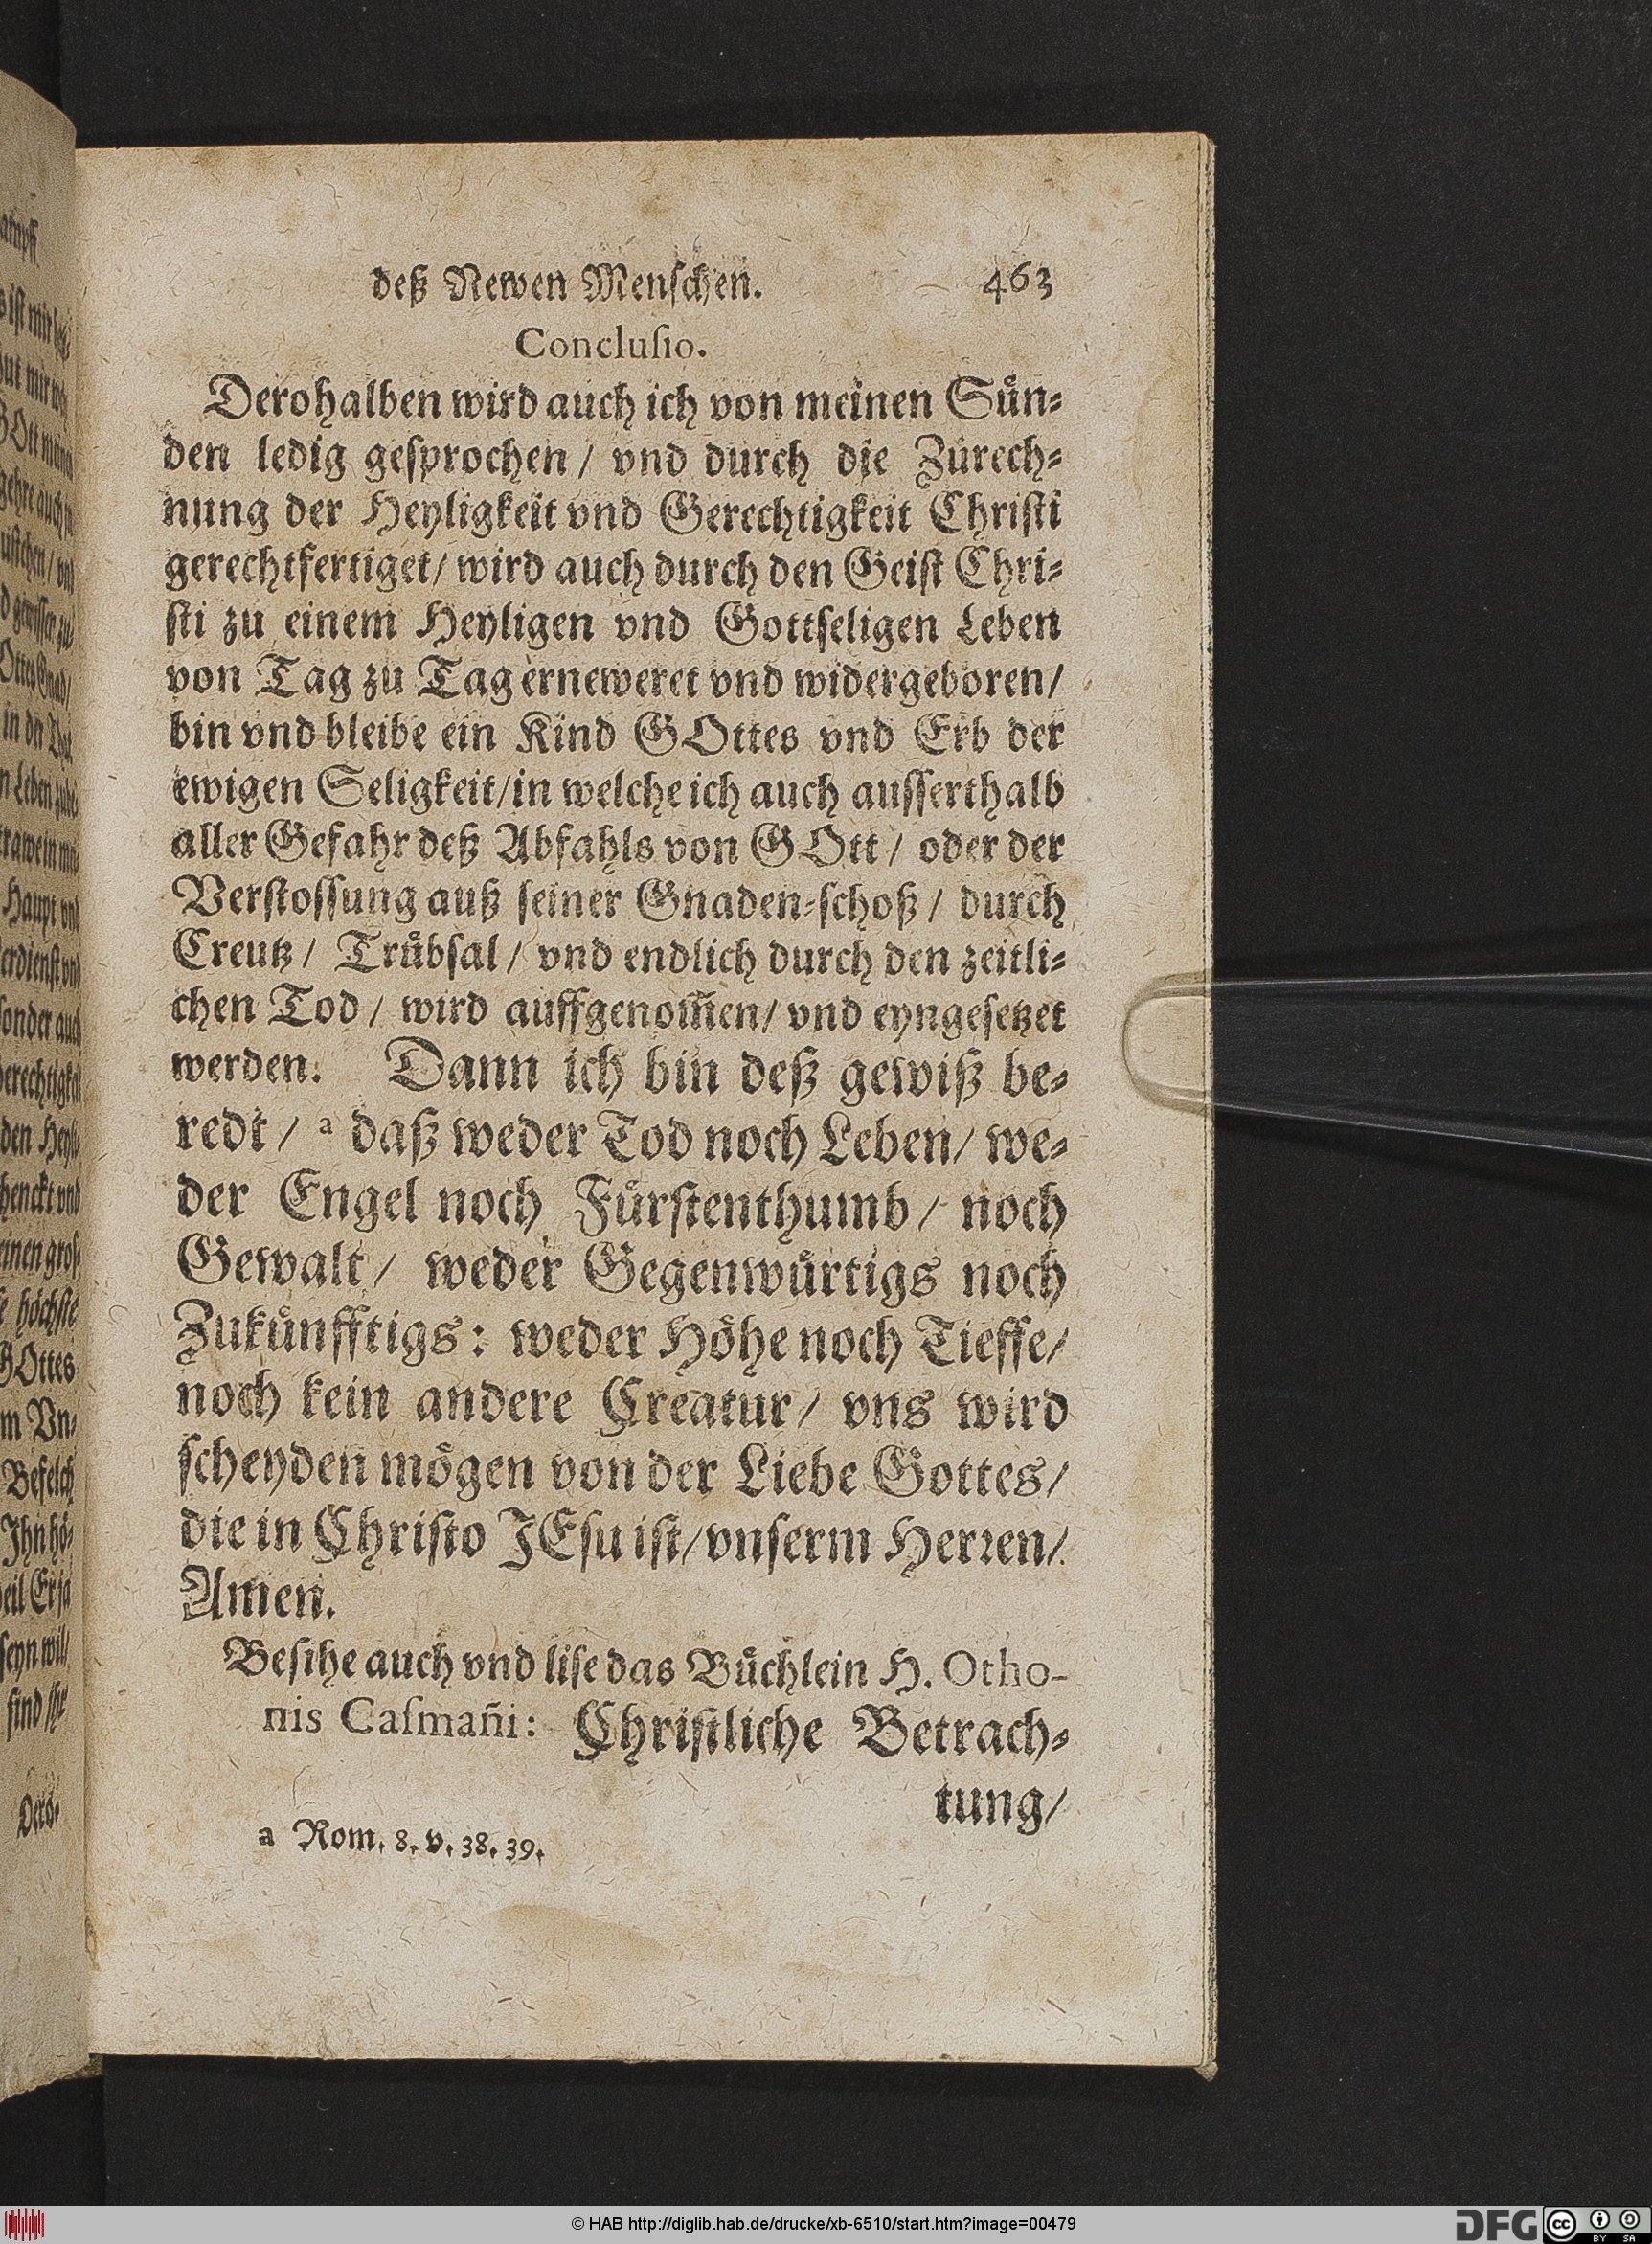 deß Newen Menſchen. 463
Concluſio.
Derohalben wird auch ich von meinen Suͤn⸗
den ledig geſprochen / vnd durch die Zurech⸗
nung der Heyligkeit vnd Gerechtigkeit Chriſti
gerechtfertiget / wird auch durch den Geiſt Chri⸗
ſti zu einem Heyligen vnd Gottſeligen Leben
von Tag zu Tag erneweret vnd widergeboren /
bin vnd bleibe ein Kind GOttes vnd Erb der
ewigen Seligkeit / in welche ich auch auſſerthalb
aller Gefahr deß Abfahls von GOtt / oder der
Verſtoſſung auß ſeiner Gnaden⸗ſchoß / durch
Creutz / Truͤbſal / vnd endlich durch den zeitli⸗
chen Tod / wird auffgenom̃en / vnd eyngeſetzet
werden. Dann ich bin deß gewiß be⸗
redt / a daß weder Tod noch Leben / we⸗
der Engel noch Fuͤrſtenthumb / noch
Gewalt / weder Gegenwuͤrtigs noch
Zukuͤnfftigs: weder Hoͤhe noch Tieffe /
noch kein andere Creatur / vns wird
ſcheyden moͤgen von der Liebe Gottes /
die in Chriſto JEſu iſt / vnſerm Herꝛen /
Amen.
Beſihe auch vnd liſe das Buͤchlein H. Otho-
nis Caſmañi: Chriſtliche Betrach⸗
tung /
a Rom. 8. v. 38. 39.
© HAB http://diglib.hab.de/drucke/xb-6510/start.htm?image=00479
DFG
cc BY SA